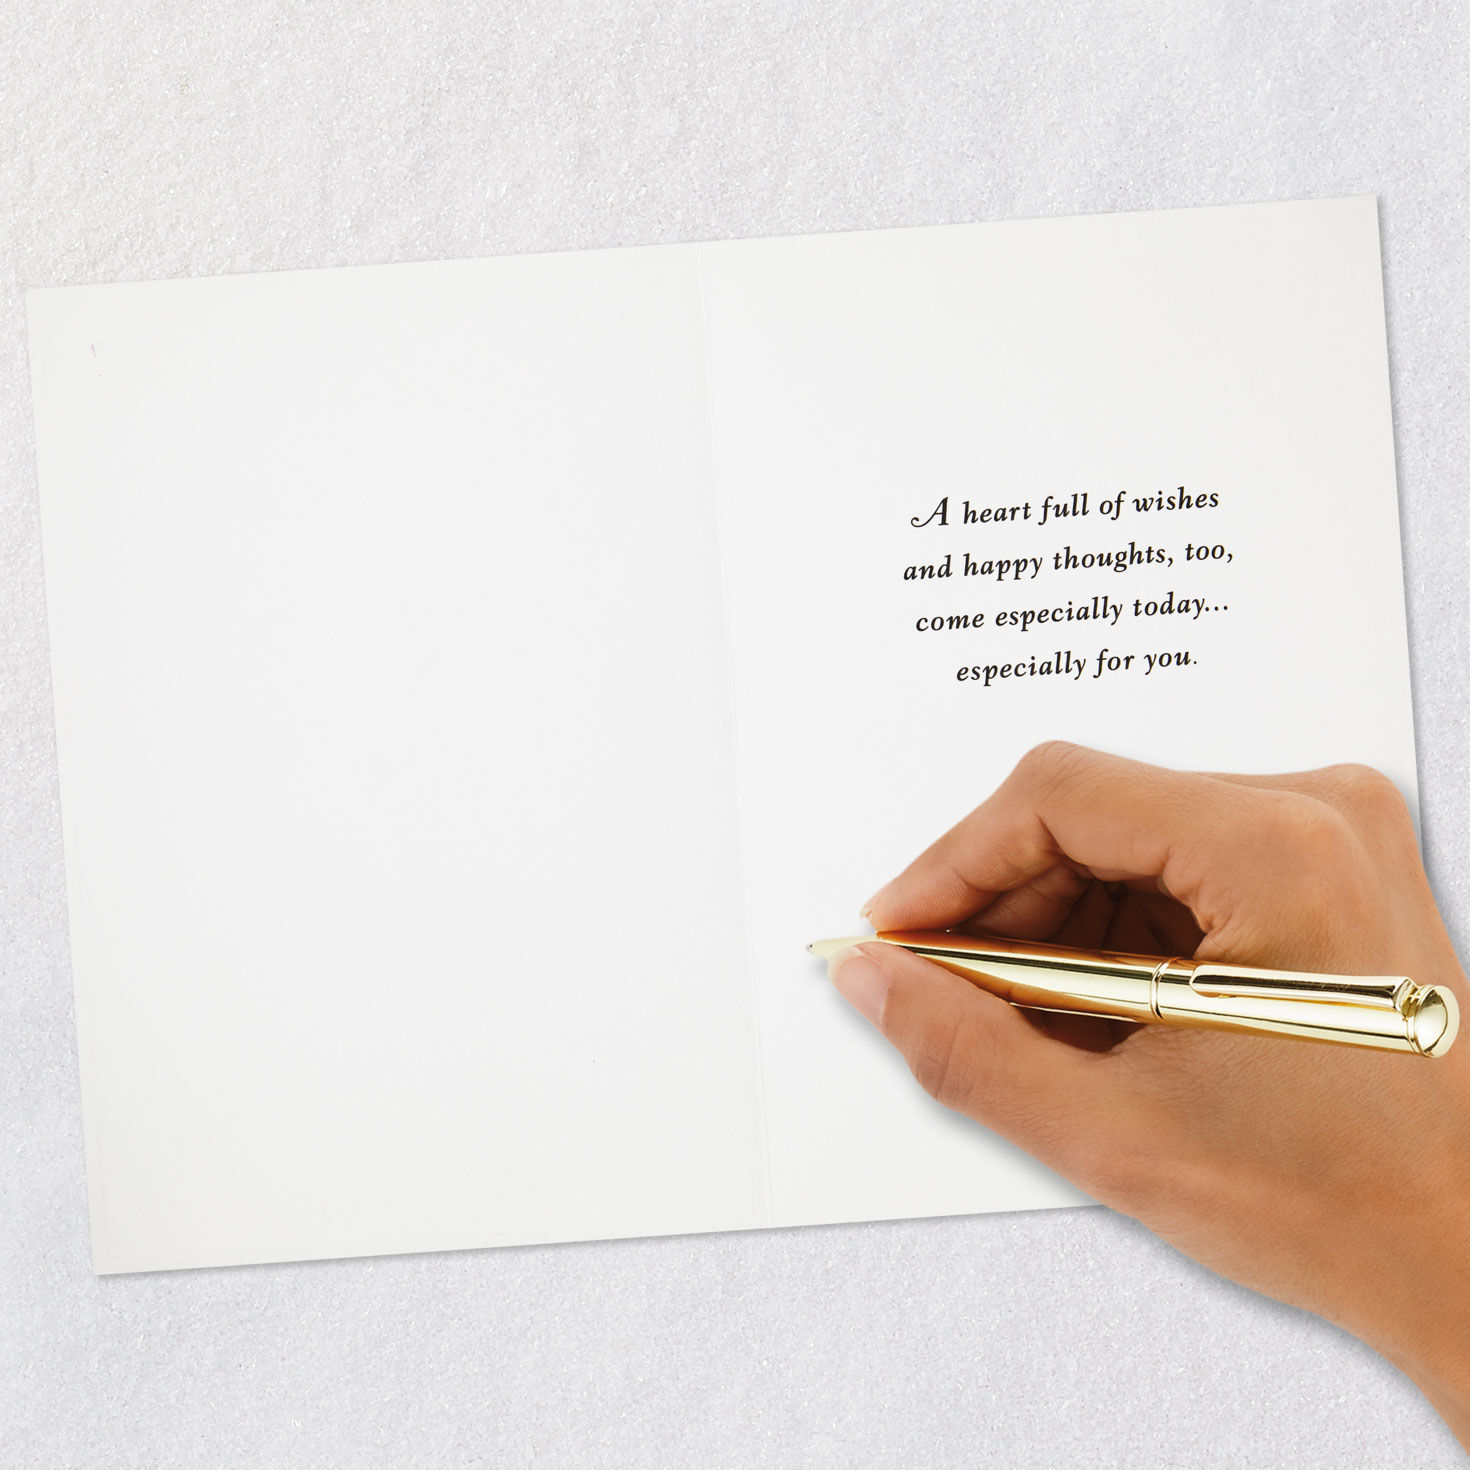 A heart full of wishes
and happy thoughts, too,
come especially today...
especially for you.